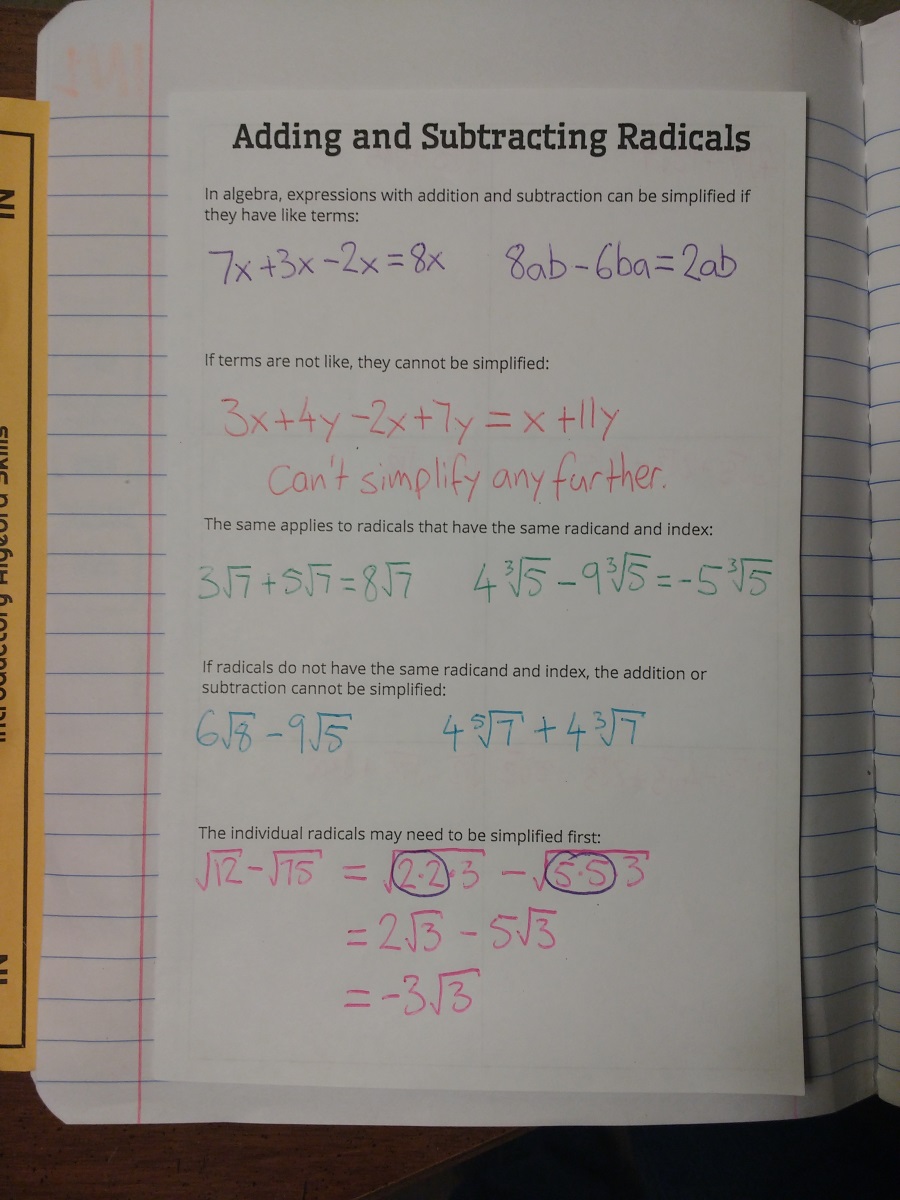 Adding and Subtracting Radicals
In algebra, expressions with addition and subtraction can be simplified if
they have like terms:
7x+3x-2x=8x 8ab-6ba=2ab
If terms are not like, they cannot be simplified:
3x+4y-2x+7y=x+11y
Can't simplify any further.
The same applies to radicals that have the same radicand and index:
3√7+5√7=8√7 4∛5-9∛5=-5∛5
If radicals do not have the same radicand and index, the addition or
subtraction cannot be simplified:
6√8-9√5 4⁵√7+4∛7
The individual radicals may need to be simplified first:
√12-√75 = √2·2·3 - √5·5 3
= 2√3 - 5√3
= -3√3
IN
Introductory Algebra Skills
IN